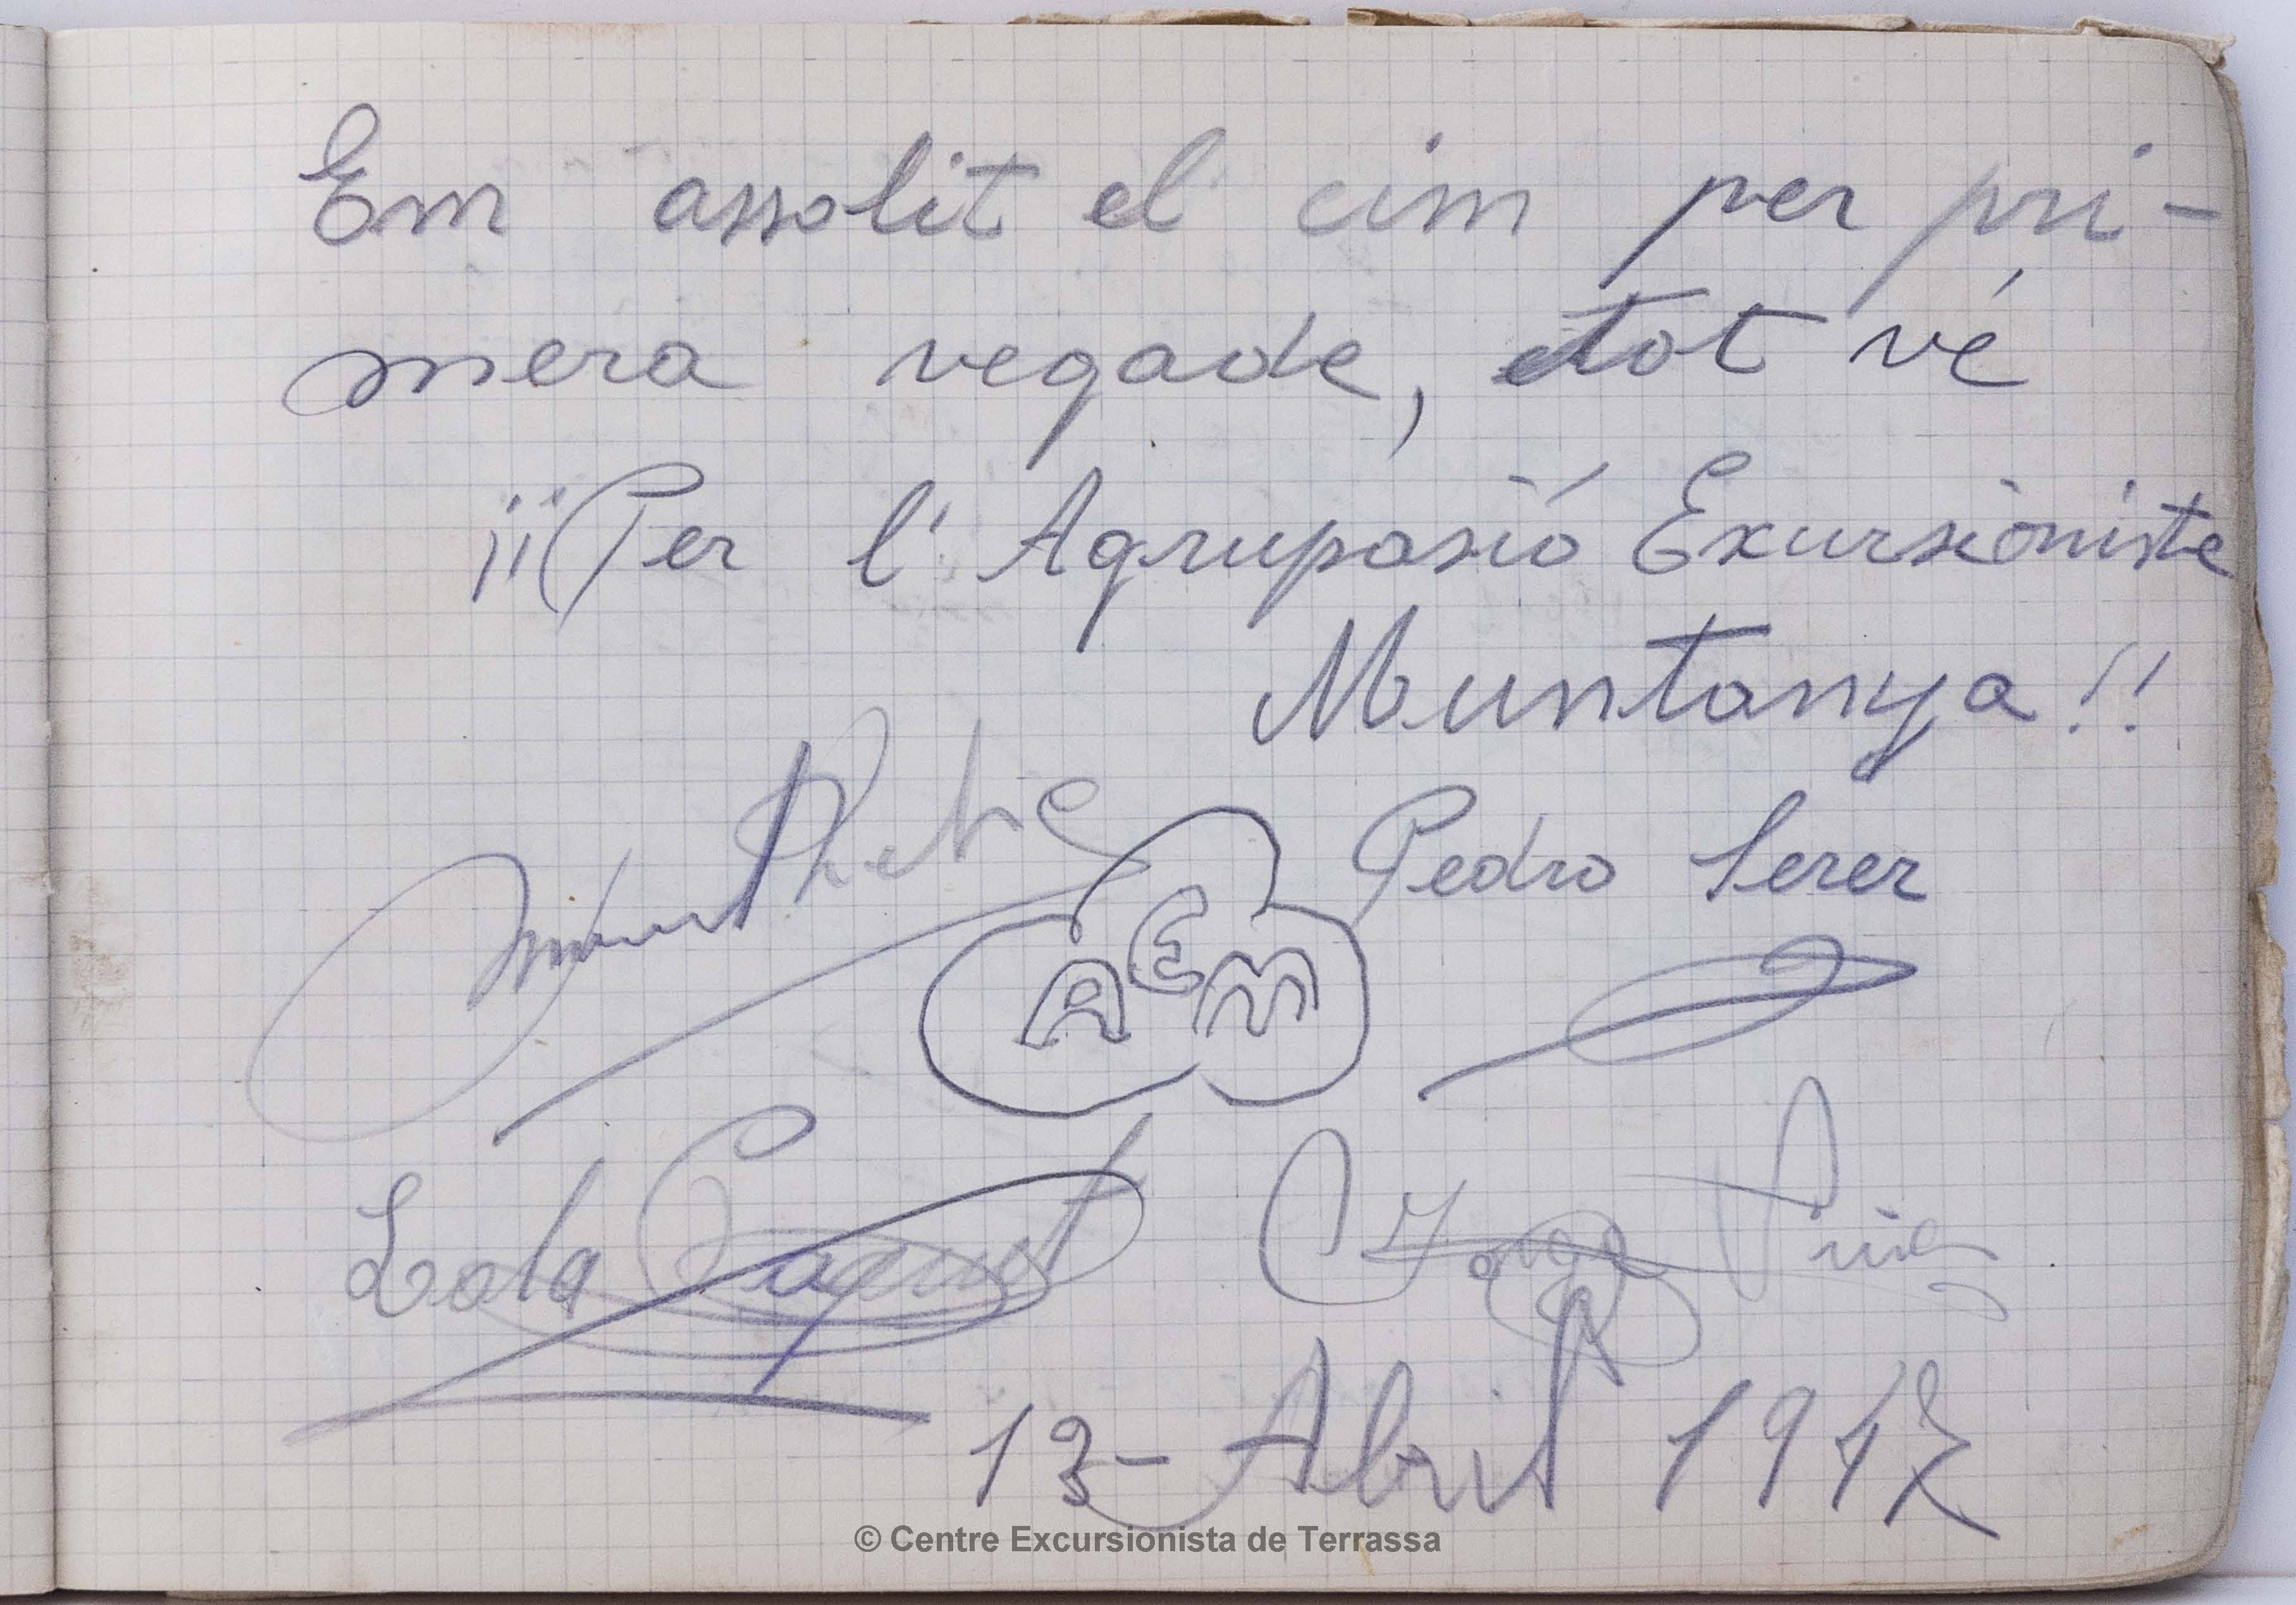 Em assolit el cim per pri-
mera vegade, tot vé
¡¡Per l'Agrupasió Excursioniste
Muntanya!!
AEM
Pedro Serer
Lola
Jorge
13-Abril 1947
© Centre Excursionista de Terrassa